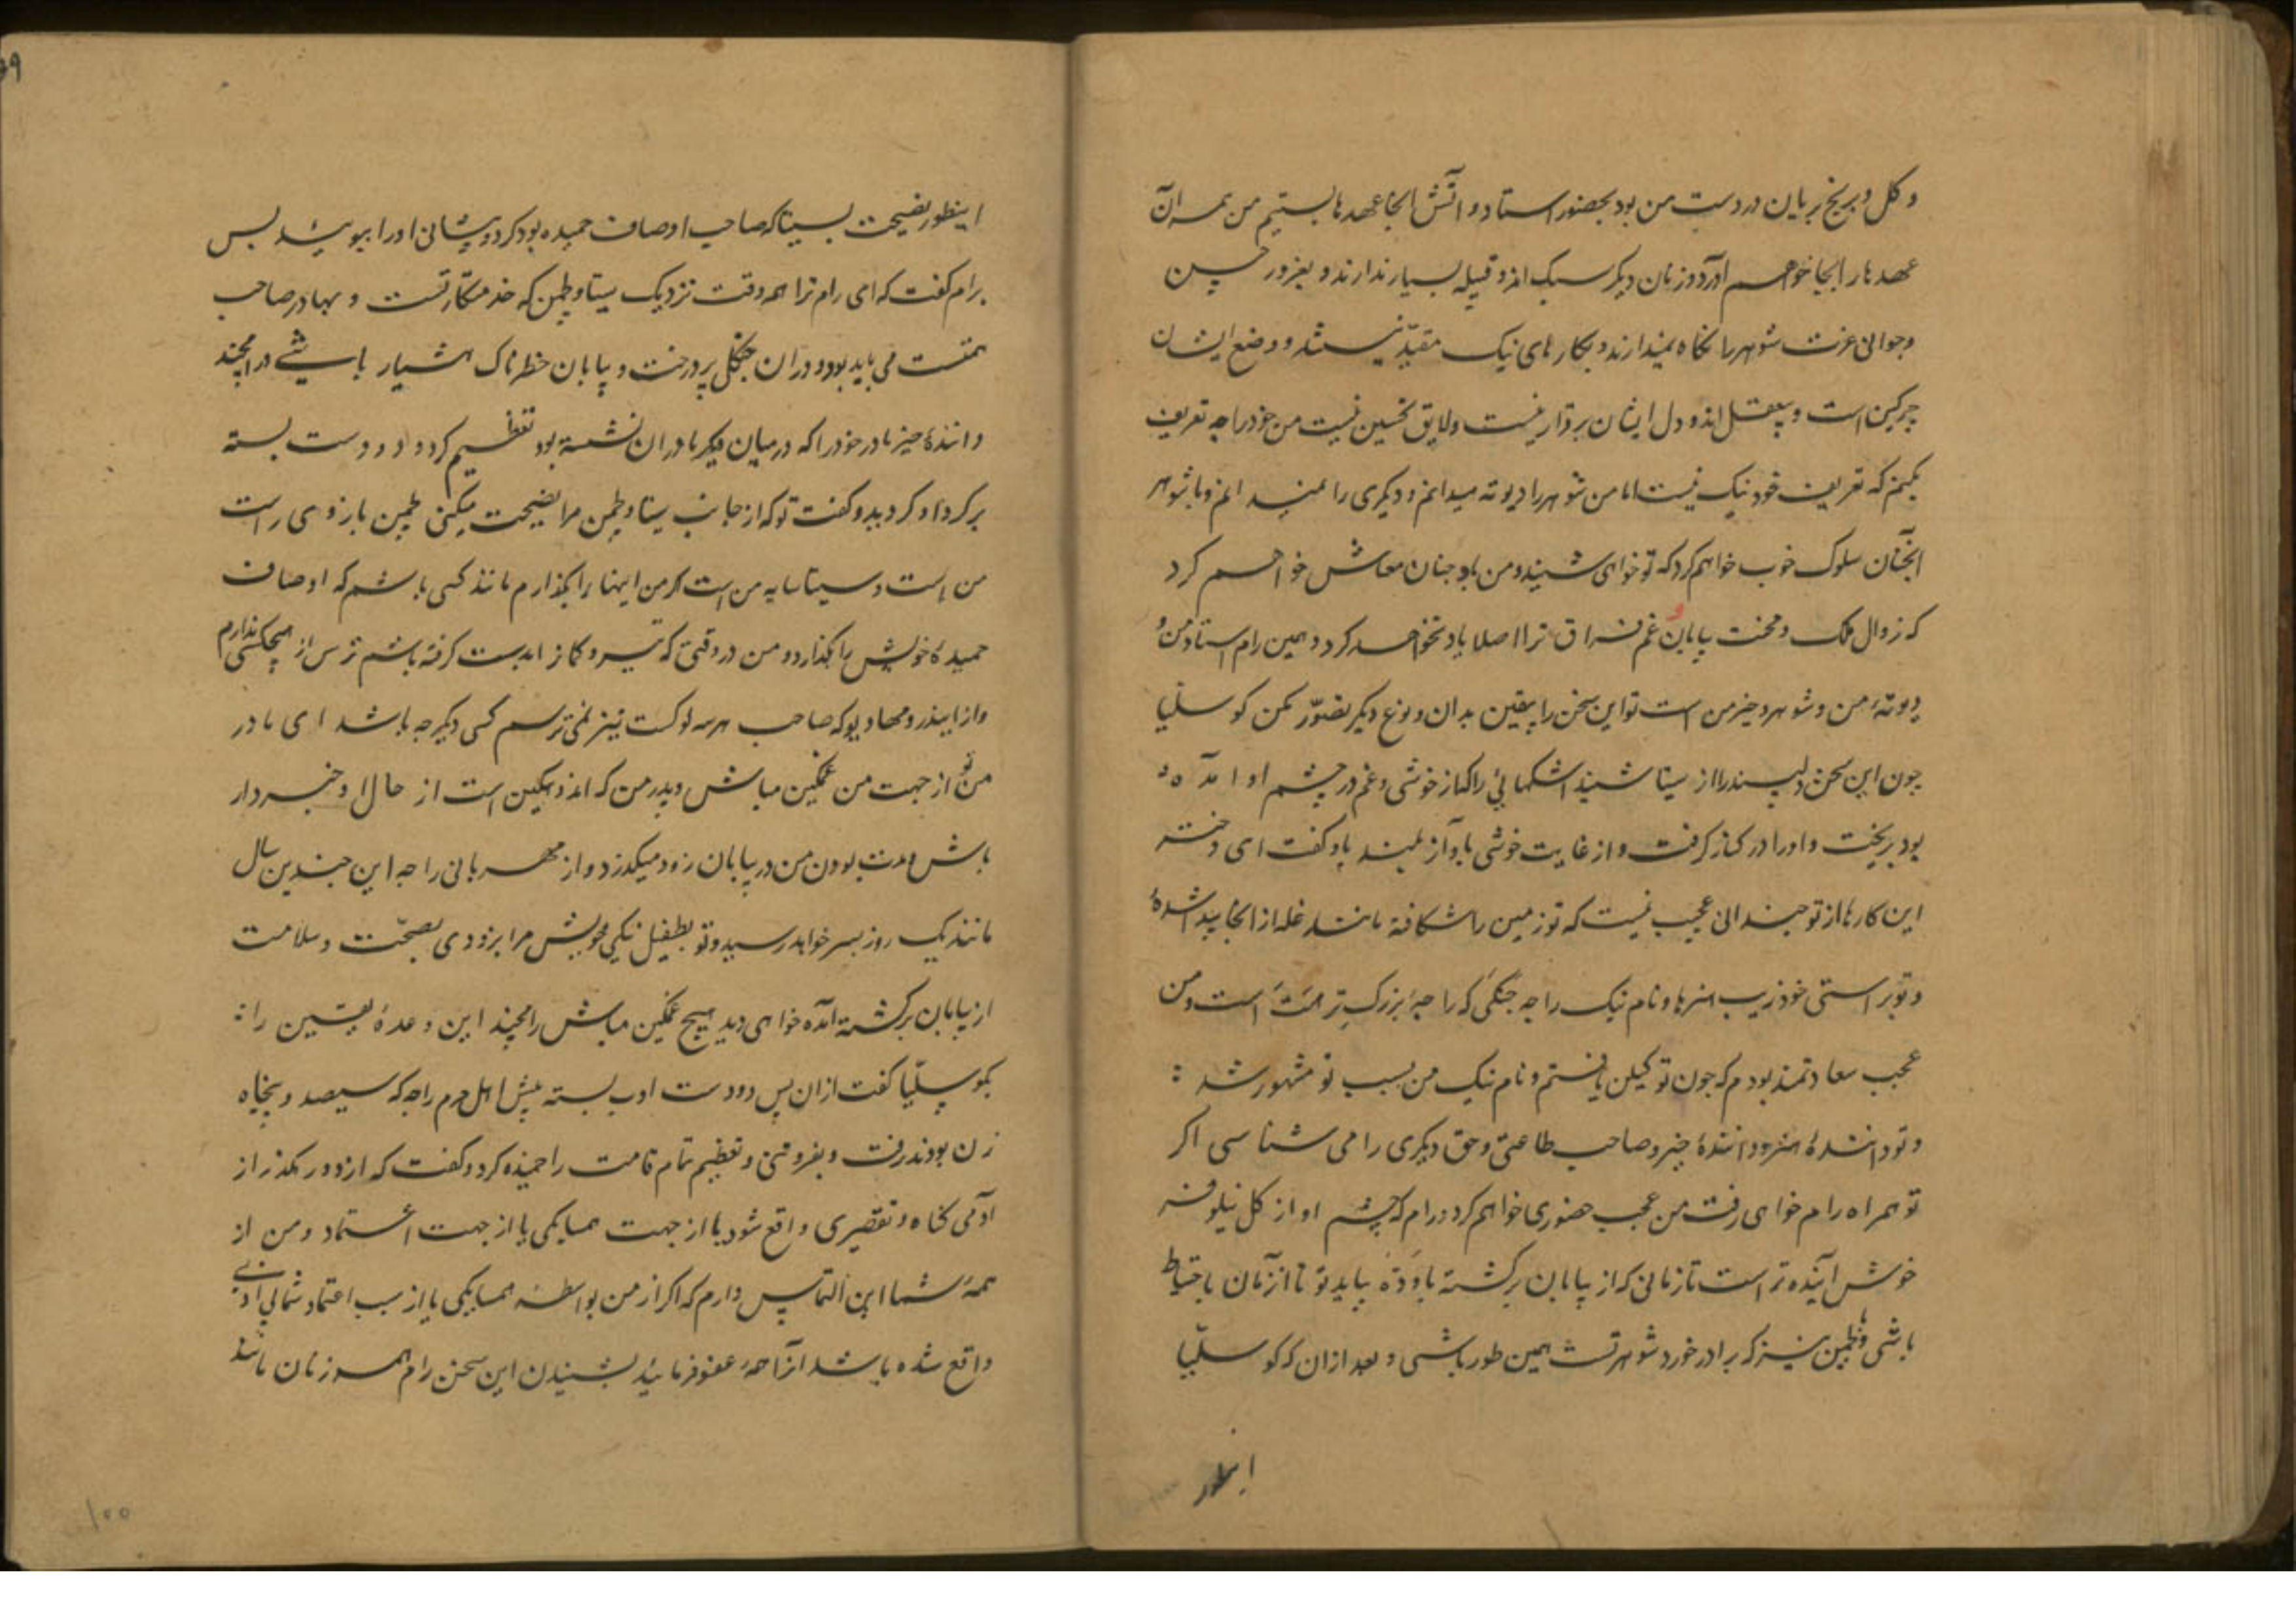 و کل و برنج بریان در دست من بود بحضور استاد و آتش انجا عهدها بستیم من همه آن
عهدها را بجا خواهم آورد و زنان دیکر سبک اند و قبیله بسیار ندارند و بغرور حسن
و جوانی عزت شوهر را نکاه نمیدارند و بکارهای نیک مقید نیستند و وضع ایشان
چرکین است و بیعقل اند و دل ایشان برقرار نیست و لایق تحسین نیست من خود را چه تعریف
بکنم که تعریف خود نیک نیست اما من شوهر را دیوته میدانم و دیکری را نمیدانم و با شوهر
انچنان سلوک خوب خواهم کرد که تو خواهی شنید و من باو چنان معاش خواهم کرد
که زوال ملک و محنت بیابان و غم فراق ترا اصلا یاد نخواهد کرد و همین رام استاد من و
دیوتهٔ من و شوهر و خیر من است تو این سخن را بیقین بدان و نوع دیکر تصوّر مکن کوسلّیا
چون این سخن دلپسند را از سیتا شنید اشکهائی را که از خوشی و غم در چشم او آمده
بود بریخت و او را در کنار کرفت و از غایت خوشی باواز بلند باو کفت ای دختر
این کارها از تو چندانی عجیب نیست که تو زمین را شکافته مانند غله از انجا پیدا شدهٔ
و تو براستی خود زیب هنرها و نام نیک راجه جنکی که راجهٔ بزرک تر است و من
عجب سعادتمند بودم که چون تو کیلن یافتم و نام نیک من بسبب تو مشهور شد :
و تو دانندهٔ هنر و دانندهٔ خیر و صاحب طاعتی و حق دیکری را می شناسی اکر
تو همراه رام خواهی رفت من عجب حضوری خواهم کرد و رام که چشم او از کل نیلوفر
خوش آینده تر است تا زمانی که از بیابان برکشته باوده بیاید تو تا آن زمان باحتیاط
باشی و با لچمن نیز که برادر خورد شوهر تست همین طور باشی و بعد ازان که کوسلّیا
اینطور
اینطور نصیحت بسیتا که صاحب اوصاف حمیده بود کرد و پیشانی او را ببوئید پس
برام کفت که ای رام ترا همه وقت نزدیک سیتا و لچمن که خدمتکار تست و بهادر صاحب
همت است می باید بود و دران جنکل پر درخت و بیابان خطرناک هشیار باشی رامچند
دانندهٔ خیر مادر خود را که در میان دیکر مادران نشسته بود تعظیم کرد و دو دست بسته
بر کرد او کردید و کفت تو که از جانب سیتا و لچمن مرا نصیحت میکنی لچمن بازوی راست
من است و سیتا سایه من است اکر من اینها را بکذارم مانند کسی باشم که اوصاف
حمیدهٔ خویش را بکذارد و من در وقتی که تیر و کمان را بدست کرفته باشم ترس از هیچکس ندارم
و از ایندر و مهادیو که صاحب هر سه لوک است نیز نمی ترسم کسی دیکر چه باشد ای مادر
من تو از جهت من غمکین مباش و پدر من که اندوهکین است از حال او خبردار
باش مدت بودن من در بیابان زود میکذرد و از مهربانی راجه این چندین سال
مانند یک روز بسر خواهد رسید و تو بطفیل نیکی خویش مرا بزودی بصحّت و سلامت
از بیابان برکشته آمده خواهی دید هیچ غمکین مباش رامچند این وعدهٔ یقین را :
بکوسلّیا کفت ازان پس دو دست ادب بسته پیش اهل حرم راجه که سیصد و پنجاه
زن بودند رفت و بفروتنی و تعظیم تمام قامت را خمیده کرد و کفت که از دور کلذر از
آدمی کناه و تقصیری واقع شود یا از جهت همسایکی یا از جهت اعتماد و من از
همهٔ شما این التماس دارم که اکر از من بواسطهٔ همسایکی یا از سبب اعتماد شما بی ادبی
واقع شده باشد آنرا همه عفو فرمائید بشنیدن این سخن رام همه زنان مانند
۱۰۰